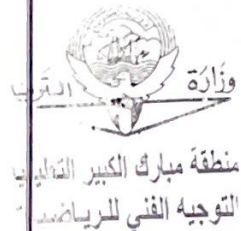 وزارة التربية
منطقة مبارك الكبير التعليمية
التوجيه الفني للرياضيات